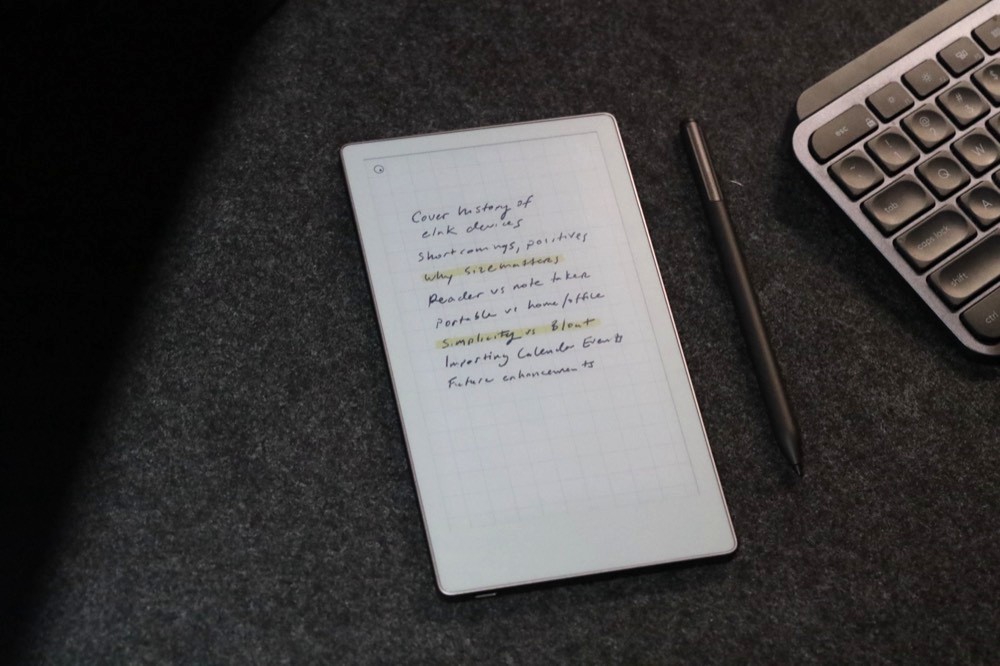 Cover history of
eInk devices
Shortcomings, positives
Why size matters
Reader vs note taker
Portable vs home/office
Simplicity vs Bloat
Importing Calendar Events
Future enhancements
esc
!
@
2
#
$
~
tab
Q
W
caps lock
A
shift